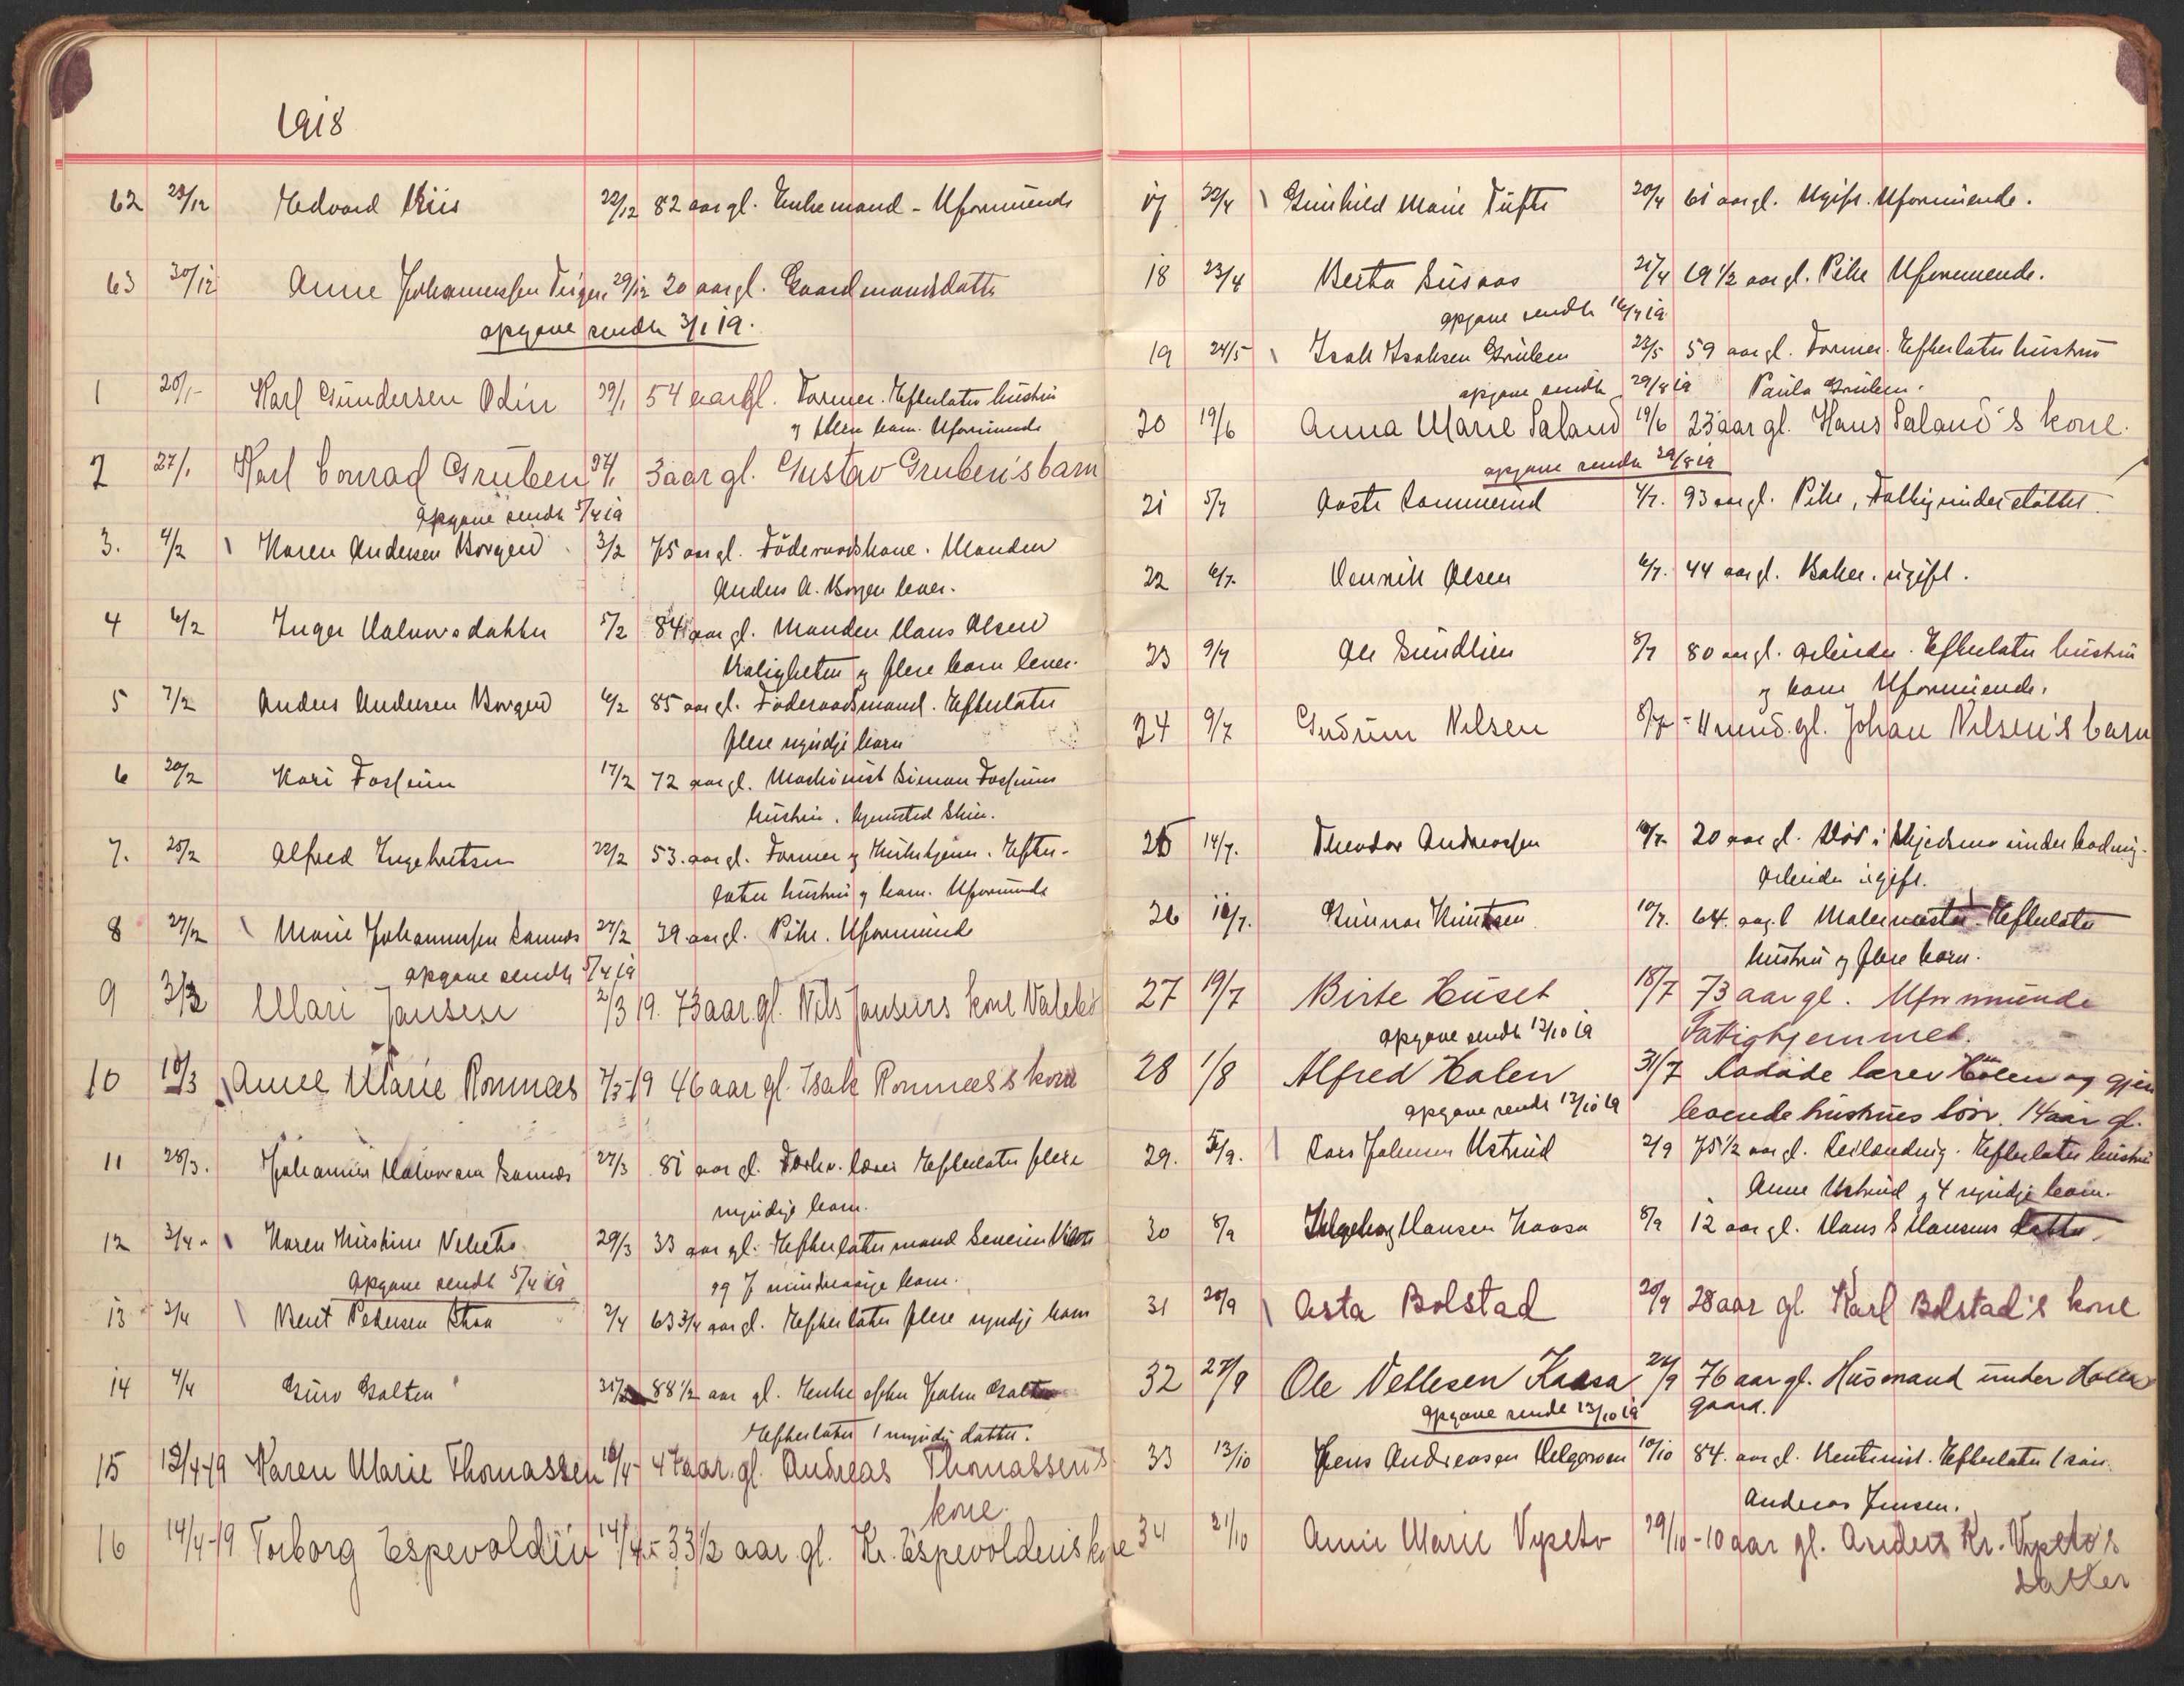 1918
62 23/12 Edvard Riis 22/12 82 aar gl. Enkemand - Uformuende
63 30/12 Anne Johannessen 29/12 20 aar gl. Gaardmandsdatter
opgave sendt 3/1 19.
1 20/1 Karl Gundersen Odin 54 aar gl. Former. Efterlater hustru
og flere barn. Uformuende
2 27/1 Karl Conrad Gruben 3 aar gl. Gustav Gruben's barn
Opgave sendt 5/4 19
3. 4/2 Karen Andersen Borgen 3/2 75 aar gl. Föderaadskone. Manden
Anders A. Borgen lever.
4 6/2 Inger Halvorsdatter 5/2 84 aar gl. Manden Hans Olsen
og flere barn lever.
5 7/2 Anders Andersen Borgen 6/2 85 aar gl. Föderaadsmand. Efterlater
flere myndje barn
6 20/2 Kari Fossum 17/2 72 aar gl. Maskinist Simon Fossums
hustru. hjemsted Skien.
7. 25/2 Alfred Ingebretsen 22/2 53 aar gl. Former og Kirketjener. Efter-
later hustru og barn. Uformuende
8 27/2 Marie Johannessen Sannes 27/2 39 aar gl. Pike. Uformuende
opgave sendt 5/4 19
9 3/3 Mari Jansen 2/3 19. 73 aar gl. Nils Jansens kone
10 10/3 Anne Marie Romnæs 7/3-19 46 aar gl. Isak Romnæs's kone
11 28/3. Johannes Halvorsen Sannes 27/3 81 aar gl. Forhv. lærer Efterlater flere
myndige barn.
12 3/4. Karen Kirstine Vebeto 29/3 33 aar gl. Efterlater mand Severin
og 7 mindreaarige barn.
Opgave sendt 5/4 19
13 3/4 Berit Pedersen 2/4 63 3/4 aar gl. Efterlater flere myndje barn
14 4/4 Guro Galten 88 1/2 aar gl. Enke efter John Galten
Efterlater 1 myndig datter.
15 12/4-19 Karen Marie Thomassen 10/4- 47 aar gl. Andreas Thomassen's
kone.
16 14/4-19 Torborg Espevolden 14/4- 33 1/2 aar gl. Kr. Espevoldens kone
17 22/4 Gunhild Marie Tufte 20/4 61 aar gl. Ugift. Uformuende.
18 23/4 Berta Susaas 21/4 19 1/2 aar gl. Pike Uformuende.
opgave sendt 16/7 19
19 24/5 Isak Isaksen Gruben 22/5 59 aar gl. Former. Efterlater hustru
Paula Gruben.
opgave sendt 29/8 19
20 19/6 Anna Marie Saland 19/6 23 aar gl. Hans Saland's kone.
opgave sendt 29/8 19
21 5/7 Aaste Sommerud 4/7. 93 aar gl. Pike, Fattigunderstöttet.
22 6/7. Henrik Olsen 6/7. 44 aar gl. Baker. ugift.
23 9/7 Ole Sundlien 8/7 80 aar gl. Arbeider. Efterlater hustru
og barn Uformuende.
24 9/7 Gudrun Nilsen 8/7 - 4 mnd. gl. Johan Nilsen's barn
25 14/7. Theodor Andreassen 20 aar gl. Död i under badning.
Arbeider ugift.
26 Gunnar Knutsen 10/7. 64 aar gl Malermester. Efterlater
hustru og flere barn.
27 19/7 Birte Huset 18/7 73 aar gl. Uformuende
Fattighjemmet.
opgave sendt 13/10 19
28 1/8 Alfred Holen 31/7 lærer Holen og gjen
levende hustrues sön. 14 aar gl.
opgave sendt 13/10 19
29. 5/9. Lars Johnsen Ustrud 2/9 75 1/2 aar gl. Efterlater hustru
Anne Ustrud og 4 myndje barn.
30 8/9 Ingeborg Hansen Kaasa 8/9 12 aar gl. Hans S Hansens datter.
31 20/9 Asta Bolstad 20/9 28 aar gl. Karl Bolstad's kone
32 27/9 Ole Vetlesen Kaasa 24/9 76 aar gl. Husmand under Holla
gaard.
opgave sendt 13/10 19
33 13/10 Jens Andreasen Helgeroen 10/10 84. aar gl. Rentenist. Efterlater 1 sön
Andreas Jensen.
34 21/10 Anne Marie Vypeto 19/10 - 10 aar gl. Anders Kr. Vypeto's
datter